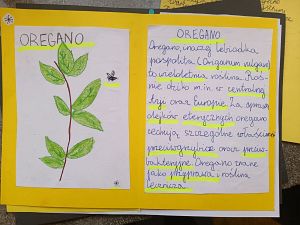 OREGANO
OREGANO
Oregano, inaczej lebiodka
pospolita (Origanum vulgare)
to wieloletnia roślina. Roś-
nie dziko m.in. w centralnej
Azji oraz Europie. Za sprawą
olejków eterycznych oregano
cechują szczególne właściwości
przeciwgrzybicze oraz przeciw-
bakteryjne. Oregano znane
jako przyprawa i roślina
lecznicza.